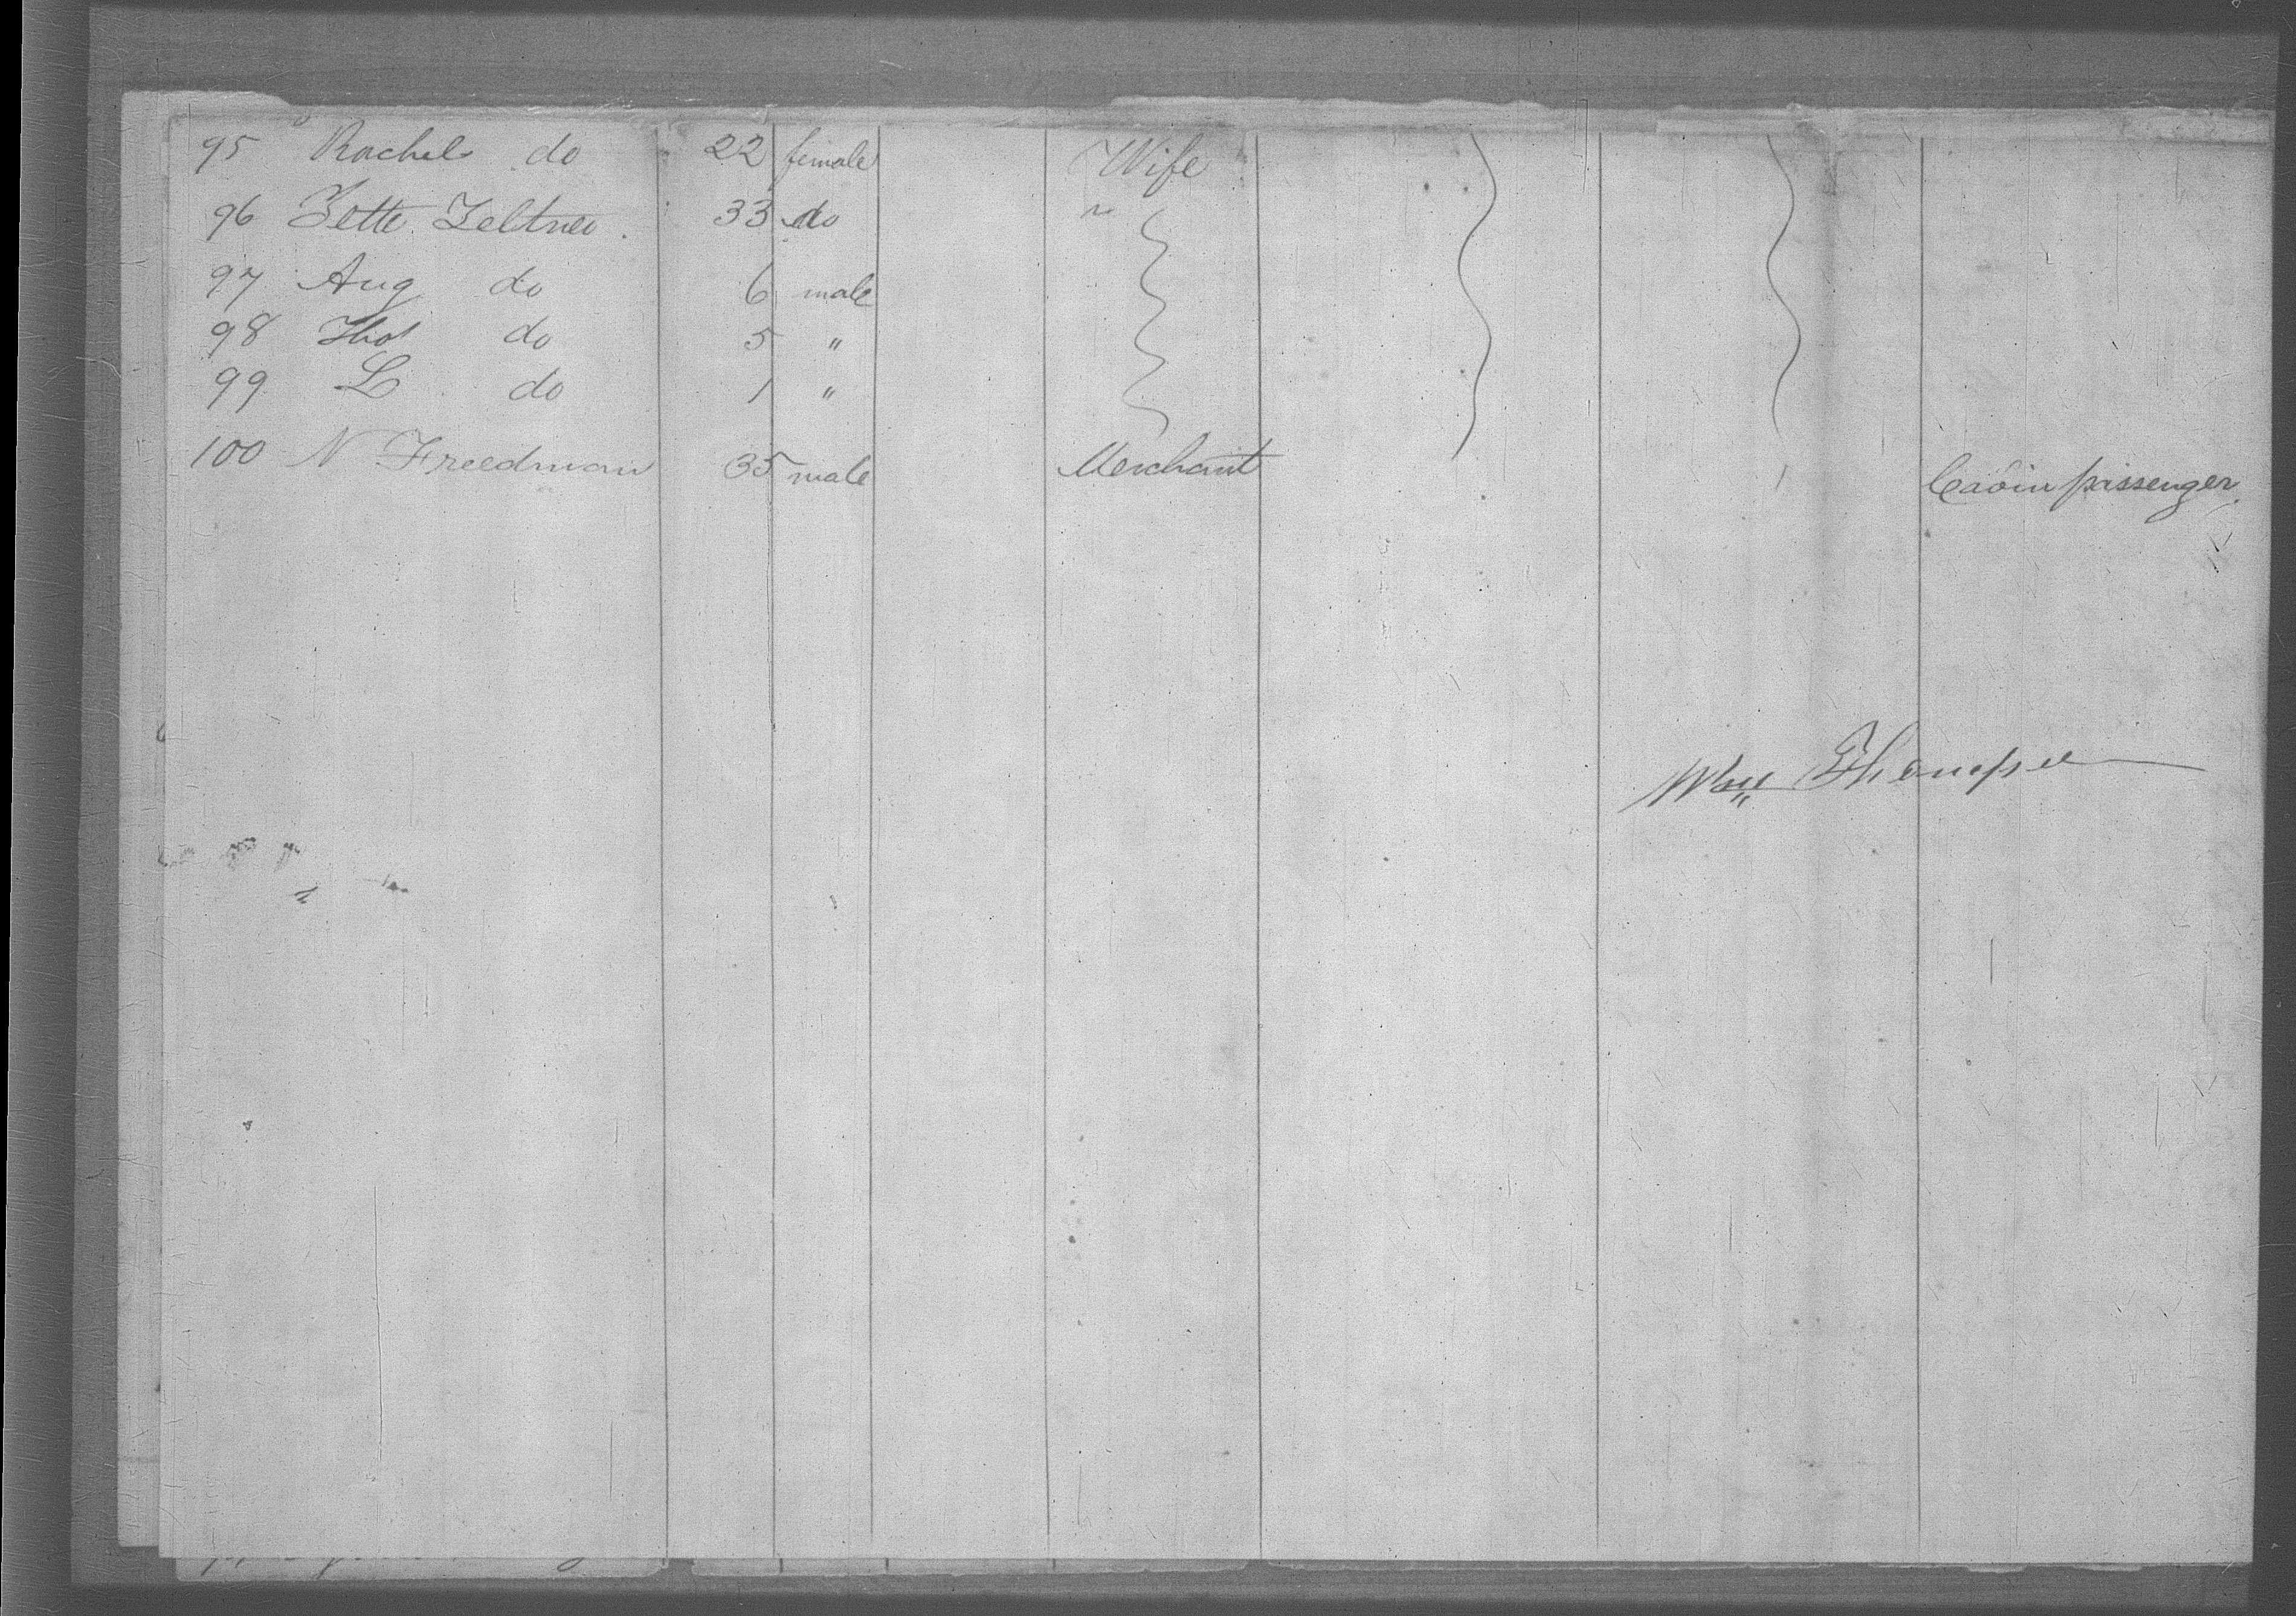 95 Rachel do 22 female Wife
96 Zette Zeltner. 33 do "
97 Aug do 6 male
98 Thos do 5 "
99 L do 1 "
100 N Freedman 35 male Merchant Cabin passenger
Wm Thompson